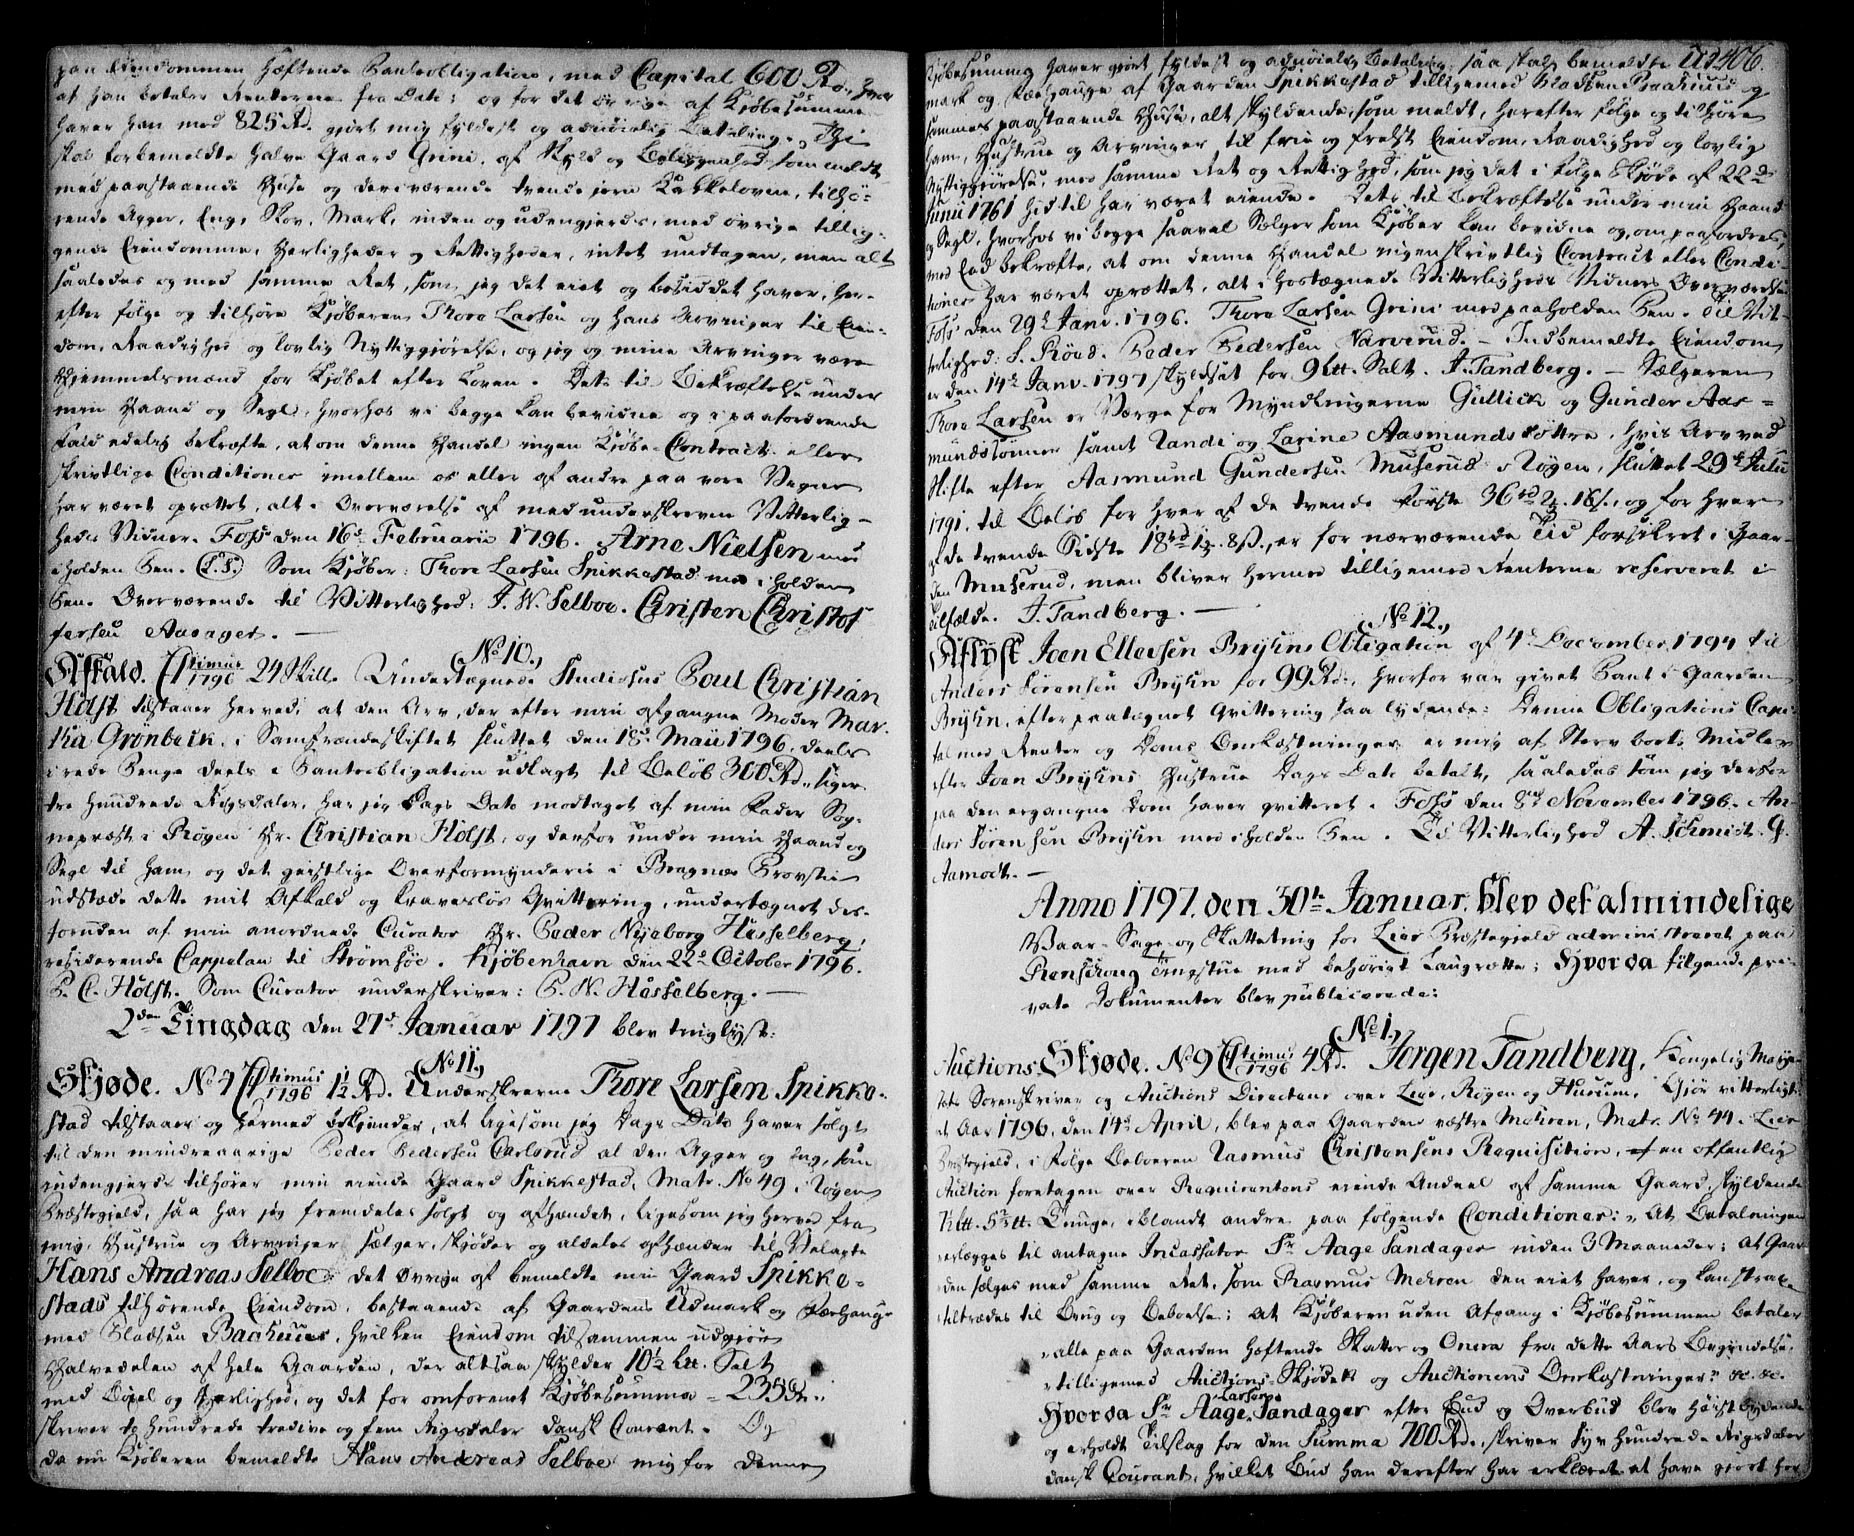 paa Eiendommen hæftende Panteobligation, med Capital 600 Rd., hvor
af han betaler Renterne fra Dato; og for det øvrige af Kjøbesummen
haver han med 825 Rd. gjort mig fyldest og adnøielig Betaling. Thi
skal forbemeldte halve Gaard Grini, af Skyld og Beliggenhed som meldt,
med paastaaende Huse og derværende tvende jern Kakkelovne, tilhø-
rende Ager, Eng, Skov, Mark, inden og udengjerds, med øvrige tillig-
gende Eiendomme, Herligheder og Rettigheder, intet undtagen, men alt
saaledes og med samme Ret, som jeg det eiet og besiddet haver, her-
efter følge og tilhøre Kjøberen Thore Larsen og hans Arvinger til Eien-
dom, Raadighed og lovlig Nyttiggjørelse, og jeg og mine Arvinger være
Hjemmelsmænd for Kjøbet efter Loven. Dets til Bekræftelse under
min Haand og Segl, hvorhos vi begge kan bevidne og i paafordrende
Fald edelig bekræfte, at om denne Handel ingen Kjøbe-Contract eller
skrivtlige Conditioner imellem os eller af andre paa vore Vegne
har været oprettet, alt i Overværelse af medunderskrevne Vitterlig-
heds Vidner. Foss den 16de Februarii 1796. Arne Nielsen med
iholden Pen. (L.S.) Som Kjøber: Thore Larsen Spikkestad med iholden
Pen. Overværende til Vitterlighed: J. W. Selboe. Christen Christof
fersen Aasager.
(No 10.)
Afkald. Chtimus 1796 24 Skill. Undertegnede Studiosus Poul Christian
Holst tilstaaer herved, at den Arv, der efter min afgangne Moder Mar-
tha Grønbeik, i Samfrændeskiftet sluttet den 18de Maii 1796, deels
i rede Penge deels i Panteobligation udlagt til Beløb 300 Rd., siger
tre hundrede Rigsdaler, har jeg Dags Dato modtaget af min Fader Sog-
nepræst i Røgen Hr. Christian Holst, og derfor under min Haand og
Segl til ham og det geistlige Overformynderie i Bragnæs Provstie
udstæde dette mit Afkald og kravesløs Qvittering, undertegnet des-
foruden af min anordnede Curator Hr. Peder Nyeborg Hasselberg,
residerende Cappelan til Strømsøe. Kjøbenhavn den 22de October 1796.
P. C. Holst. Som Curator underskriver: P. N. Hasselberg.
2den Tingdag den 27de Januar 1797 blev tinglyst:
(No 11.)
Skjøde. No 4 Chtimus 1796 1½ Rd. Underskrevne Thore Larsen Spikke-
stad tilstaaer og hermed bekjender, at ligesom jeg Dags Dato haver solgt
til den mindreaarige Peder Pedersen Carlsrud al den Agger og Eng, som
indengjerds tilhører min eiende Gaard Spikkestad, Matr. No 49 i Røgen
Præstegield, saa har jeg fremdeles solgt og afhændet, ligesom jeg herved fra
mig, Hustrue og Arvinger sælger, skjøder og aldeles afhænder til Velagte
Hans Andreas Selboe, det øvrige af bemeldte min Gaard Spikke-
stads tilhørende Eiendom, bestaaende af Gaardens Udmark og Færhauge
med Pladsen Baahuus, hvilken Eiendom tilsammen udgjør
Halvedelen af hele Gaarden, der altsaa skylder 10½ Ltt. Salt
med Bøxel og Herlighed, og det for omforenet Kjøbesumma = 235 Rd.
skriver to hundrede tredive og fem Rigsdaler dansk Courant. Og
da nu Kjøberen bemeldte Hans Andreas Selboe mig for denne
406.
Kjøbesumma haver gjort fyldest og adnøielig Betaling; saa skal bemeldte Ud-
mark og Færhauge af Gaarden Spikkestad tilligemed Pladsen Baahuus og
sammes paastaaende Huse, alt skyldende, som meldt, herefter følge og tilhøre
ham, Hustrue og Arvinger til frie og frelst Eiendom, Raadighed og lovlig
Nyttiggjørelse, med samme Ret og Rettighed, som jeg det i Følge Skjøde af 22de
Junii 1761 hidtil har været eiende. Dets til Bekræftelse under min Haand
og Segl, hvorhos vi begge saavel Sælger som Kjøber kan bevidne og, om paafordres,
med Eed bekræfte, at om denne Handel ingen skrivtlig Contract eller Condi-
tioner har været oprettet, alt i hostegnede Vitterligheds Vidners Overværelse
Foss den 29de Janv. 1796. Thore Larsen Grini med paaholden Pen. Til Vit-
terlighed: S. Röed. Peder Pedersen Narverud. – Indbemeldte Eiendom
er den 14de Janv. 1797 skyldsat for 9 Ltt. Salt. J. Tandberg. – Sælgeren
Thore Larsen er Værge for Myndlingerne Gullick og Gunder Aas-
mundssønner samt Randi og Larine Aasmundsdøttre, hvis Arv ved
Skifte efter Aasmund Gundersen Muserud i Røgen, sluttet 29de Julii
1791, til Beløb for hver af de tvende første 36 rd 2 . 16 s., og for hver
af de tvende sidste 18 rd 1 . 8 s., er for nærværende Tid forsikret i Gaar-
den Muserud, men bliver hermed tilligemed Renterne reserveret i
Tilfælde. J. Tandberg.
(No 12.)
Aflyst Joen Ellevsen Brysns Obligation af 4de December 1794 til
Anders Sørensen Brysn for 99 Rd., hvorfor var givet Pant i Gaarden
Brysn, efter paategnet Qvittering saa lydende: Denne Obligations Capi-
tal med Renter og Doms Omkostninger er mig af Sterv boets Midler
efter Joen Brysns Hustrue Dags Dato betalt, saaledes som jeg derfor
paa den ergangne Dom haver qvitteret. Foss den 8de November 1796. An-
ders Sørensen Brysn med iholden Pen. Til Vitterlighed A. Schmidt. G.
Aamodt.
Anno 1797, den 30te Januar, blev det almindelige
Vaar- Sage- og Skattetnig for Lier Præstegield administreret paa
Tingstue med behørigt Laugrette; Hvorda følgende pri-
vate Dokumenter blev publicerede:
(No 1.)
Auctions-Skjøde. No 9 Chtimus 1796 4 Rd. Jørgen Tandberg, Kongelig Maje-
stæts Sorenskriver og Auctions Directeur over Lier, Røgen og Hurum, Gjør vitterligt:
at Aar 1796, den 14de April, blev paa Gaarden vestre Mehren, Matr. No 44 i Lier
Præstegield, i Følge Beboeren Rasmus Christensens Requisition, en offentlig
Auction foretagen over Requirentens eiende Andeel af samme Gaard, skyldende
Tunge, iblandt andre paa følgende Conditioner: „At Betalningen
erlægges til antagne Incassator Sr Aage Sandager inden 3 Maaneder; at Gaar-
den sælges med samme Ret, som Rasmus Mehren den eiet haver, og kan strax
tiltrædes til Brug og Beboelse; at Kjøberen uden Afgang i Kjøbesummen betaler
„alle paa Gaarden hæftende Skatter og Onera fra dette Aars Begyndelse,
„tilligemed Auctions-Skjødet og Auctionens Omkostninger” &c. &c.
Hvorda Sr Aage Larsen Sandager efter Bud og Overbud blev høistbydende
og erholdt Tilslag for den Summa 700 Rd., skriver syv hundrede Rigsdaler
dansk Courant, hvilket Bud han derefter har erklæret at have gjort for